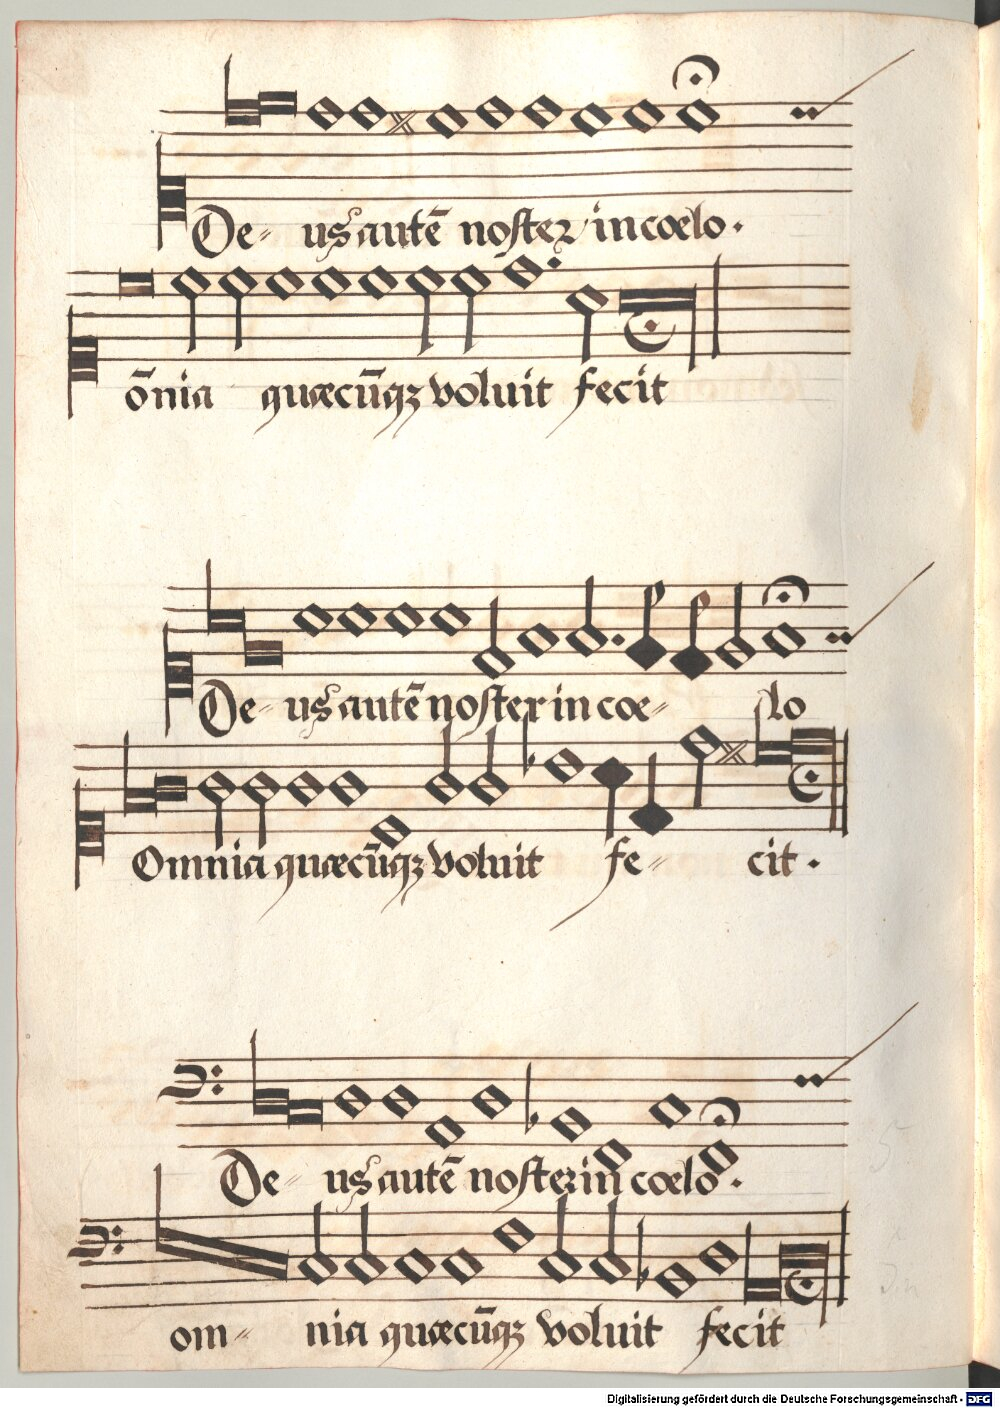 De⸗ us autē noster in coelo.
ōnia quæcūqꝫ voluit fecit
De⸗ us autē noster in coe⸗ lo
Omnia quæcūqꝫ voluit fe⸗ cit.
De⸗ us autē noster in coelo.
om⸗ nia quæcūqꝫ voluit fecit
Digitalisierung gefördert durch die Deutsche Forschungsgemeinschaft - DFG